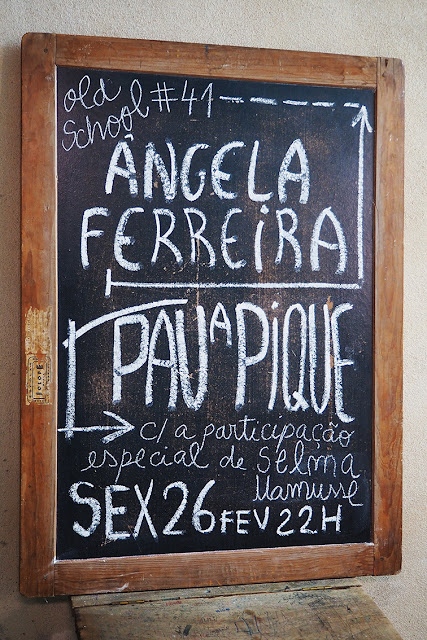 old
School #41
ÂNGELA
FERREIRA
PAU A PIQUE
c/ a participação
especial de Selma
Uamusse
SEX 26 FEV 22H